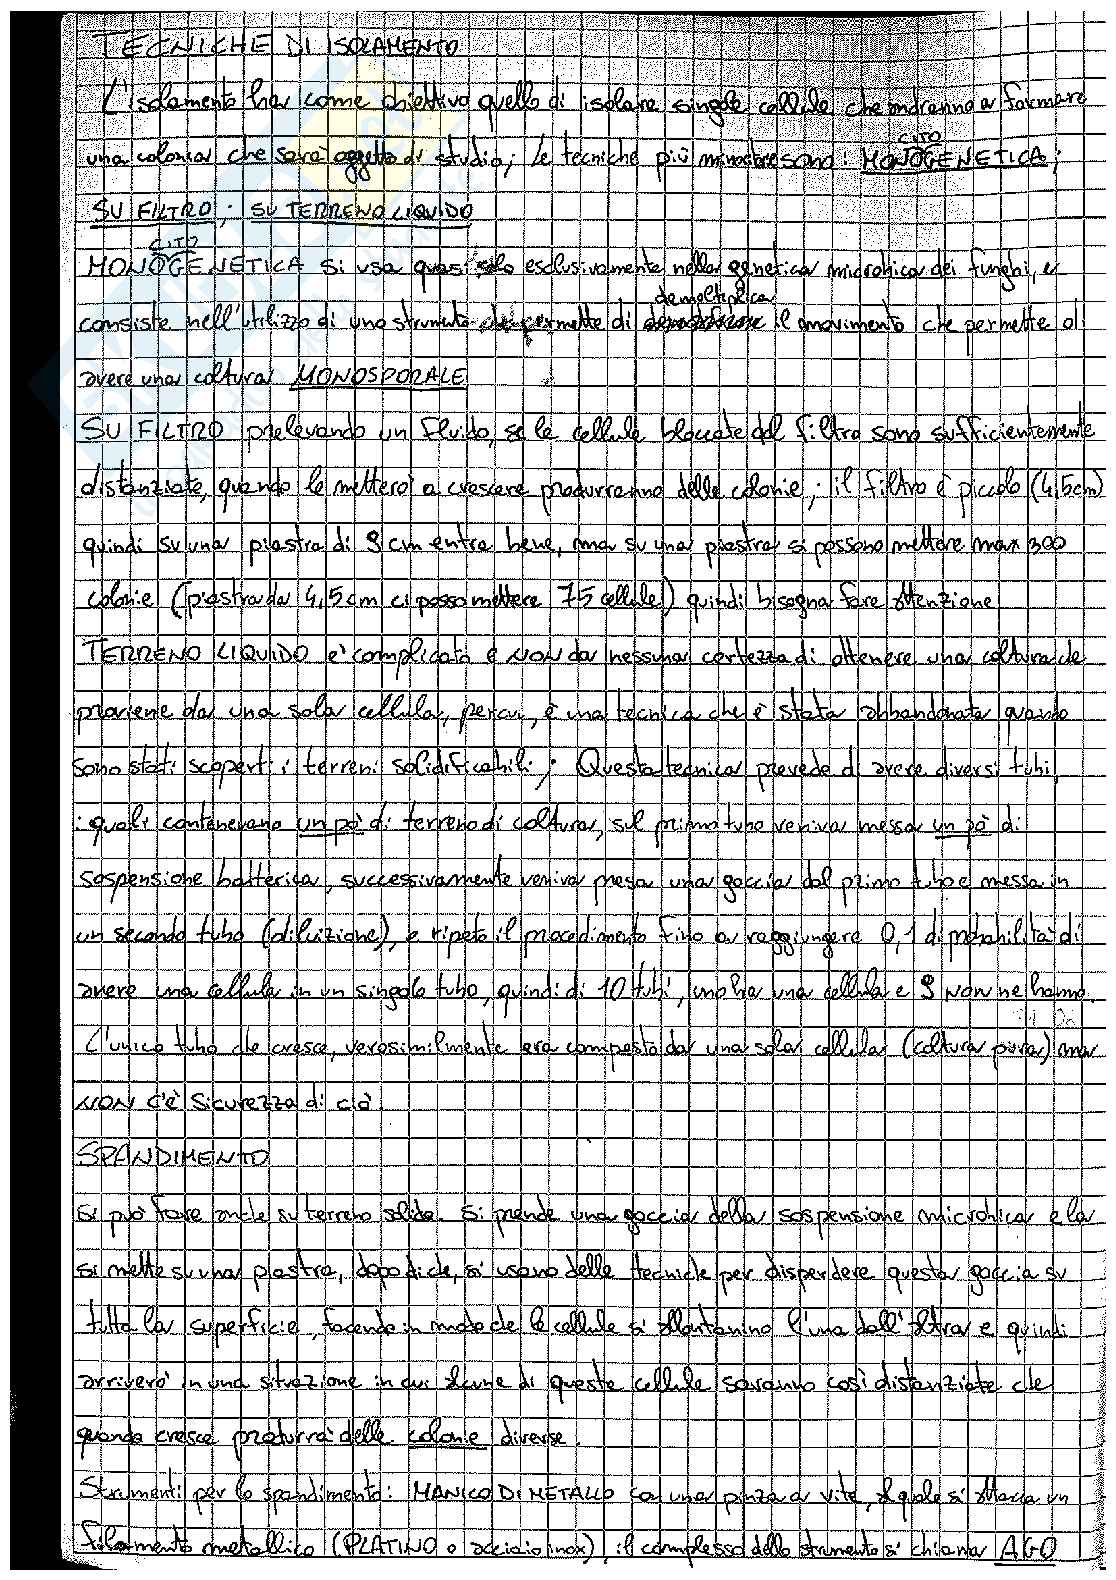 TECNICHE DI ISOLAMENTO
L'isolamento ha come obiettivo quello di isolare singole cellule che andranno a formare
una colonia che sarà oggetto di studio; le tecniche più sono: MONOGENETICA;
CITO
SU FILTRO; SU TERRENO LIQUIDO
CITO
MONOGENETICA si usa quasi esclusivamente nella genetica microbica dei funghi, e
demoltiplica
consiste nell'utilizzo di uno strumento che permette di il movimento che permette di
avere una coltura MONOSPORALE
SU FILTRO prelevando un fluido, se le cellule bloccate dal filtro sono sufficientemente
distanziate, quando le metterò a crescere produrranno delle colonie; il filtro è piccolo (4,5cm)
quindi su una piastra di 9 cm entra bene, ma su una piastra si possono mettere max 300
colonie (piastra da 4,5cm ci posso mettere 75 cellule) quindi bisogna fare attenzione
TERRENO LIQUIDO è complicata e NON da nessuna certezza di ottenere una coltura che
proviene da una sola cellula, percui, è una tecnica che è stata abbandonata quando
sono stati scoperti i terreni solidificabili; Questa tecnica prevede di avere diversi tubi,
i quali contenevano un pò di terreno di coltura, sul primo tubo veniva messa un pò di
sospensione batterica, successivamente veniva presa una goccia dal primo tubo e messa in
un secondo tubo (diluizione), e ripeto il procedimento fino a raggiungere 0,1 di probabilità di
avere una cellula in un singolo tubo, quindi di 10 tubi, uno ha una cellula e 9 non ne hanno.
L'unico tubo che cresce, verosimilmente era composto da una sola cellula (coltura pura) ma
NON c'è sicurezza di ciò.
SPANDIMENTO
Si può fare anche su terreno solido. Si prende una goccia della sospensione microbica e la
si mette su una piastra, dopo di che, si usano delle tecniche per disperdere questa goccia su
tutta la superficie, facendo in modo che le cellule si allontanino l'una dall'altra e quindi
arriverò in una situazione in cui alcune di queste cellule saranno così distanziate che
quando cresce produrrà delle colonie diverse.
Strumenti per lo spandimento: MANICO DI METALLO con una pinza a vite, al quale si attacca un
filamento metallico (PLATINO o acciaio inox), il complesso dello strumento si chiama AGO